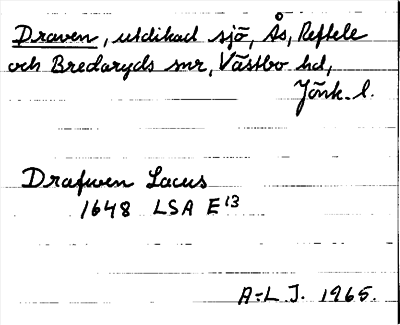 Draven, utdikad sjö, Ås, Reftele
och Bredaryds snr, Västbo hd,
Jönk. l.
Drafwen Lacus
1648 LSA E¹³
A-L J. 1965.